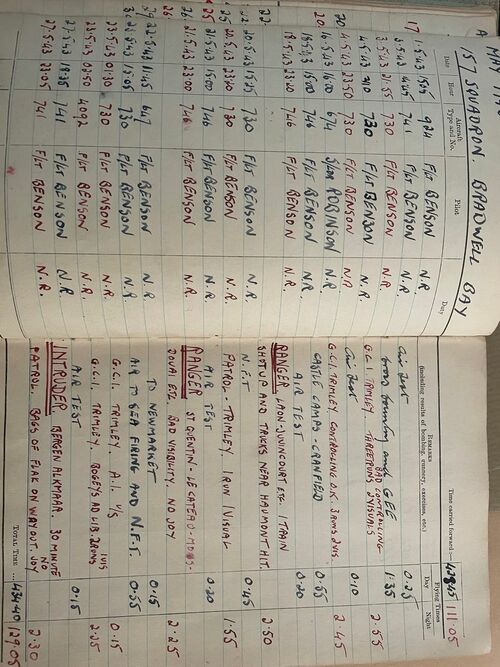 151 SQUADRON. BRADWELL BAY
Date Hour Aircraft Type and No. Pilot Duty REMARKS Flying Times
(including results of bombing, gunnery, exercises, etc.) Day Night
Time carried forward :— 428.45 111.05
17 1.5.43 924 F/LT BENSON N.R Air Test 0.25
3.5.43 741 F/LT BENSON N.R. and GEE 1.35
3.5.43 21.55 730 F/LT BENSON N.R. G.C.I. TRIMLEY. BAD CONTROLLING THREE RUNS 2 VISUALS 2.55
4.5.43 730 F/LT BENSON N.R. Air test 0.10
20 4.5.43 23.50 730 F/LT BENSON N.R G.C.I. TRIMLEY. CONTROLLING O.K. 3 RUNS 2 VIS 2.45
16.00 674 S/LDR ROBINSON N.R. CASTLE CAMPS - CRANFIELD 0.55
18.5.43 15.00 746 F/LT BENSON N.R. AIR TEST 0.20
20 18.5.43 23.20 746 F/LT BENSON N.R. RANGER LAON-JUVINCOURT ETC. 1 TRAIN
SHOT UP AND TRICKS NEAR HAUMONT HIT. 2.50
22 20.5.43 15.25 730 F/LT BENSON N.R. N.F.T 0.45
25 20.5.43 23.40 730 F/LT BENSON N.R. PATROL - TRIMLEY. 1 RUN 1 VISUAL 1.55
25 21.5.43 15.00 746 F/LT BENSON N.R. AIR TEST 0.20
26 21.5.43 23.00 746 F/LT BENSON N.R. RANGER ST QUENTIN - LE CATEAU -
DOUAI ETC. BAD VISIBILITY. NO JOY 2.25
22.5.43 11.45 647 F/LT BENSON N.R TO NEWMARKET 0.15
730 F/LT BENSON N.R. AIR TO SEA FIRING AND N.F.T. 0.55
23.5.43 01.30 730 F/LT BENSON N.R. G.C.I. TRIMLEY A.I. U/S 0.15
23.5.43 02.50 4092 F/LT BENSON N.R. G.C.I. TRIMLEY. BOGEYS AD LIB. 2 RUNS 1 VIS 2.25
27.5.43 18.35 741 F/LT BENSON N.R. AIR TEST 0.15
27.5.43 23.05 741 F/LT BENSON N.R. INTRUDER BERGEN ALKMAAR. 30 MINUTE
PATROL. BAGS OF FLAK ON WAY OUT. NO JOY 2.30
TOTAL TIME ... 434.40 129.05